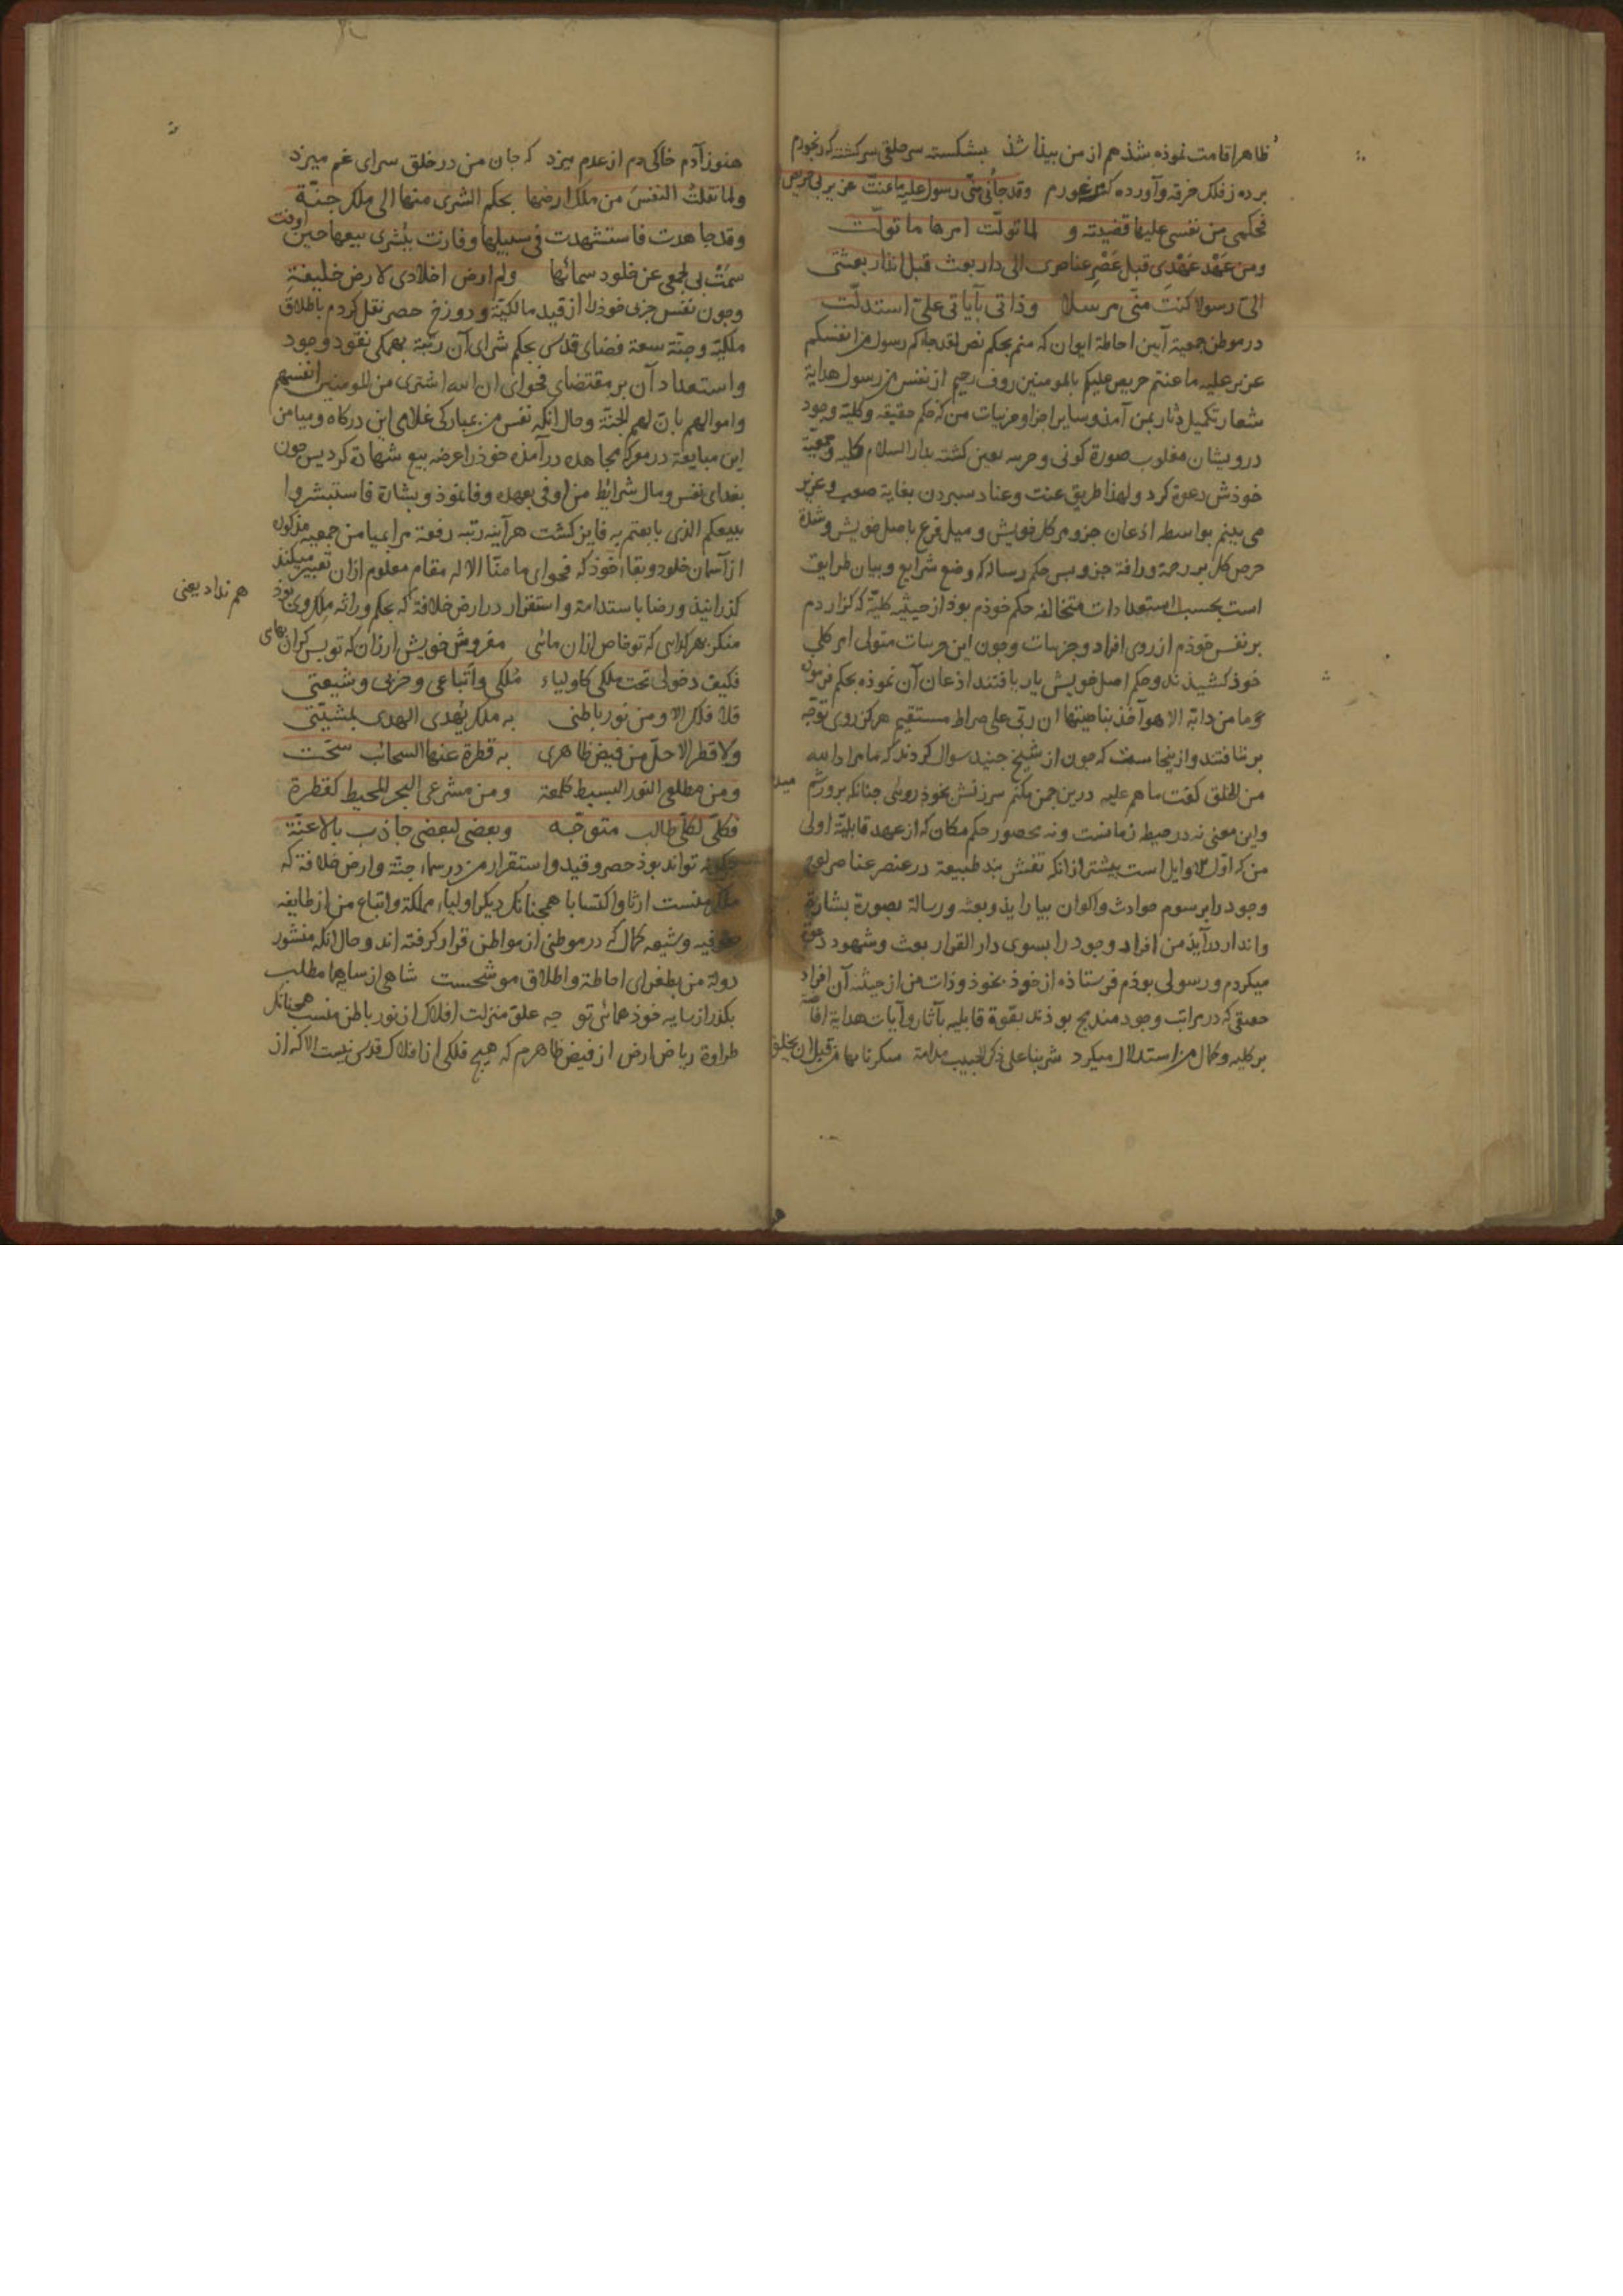 ظاهرا قامت نموذه شذ هم از من بیذا شذ بشکسته سر حلقی سرکشته که رنجورم
برده ز فلک خرقه وآورده که وقد جاءنی منّی رسول علیه ما عنتّ عزیز بی حریص
فحکمی من نفسی علیها قضیته و لما تولّت امرها ما تولّت
ومن عَهْد عَهْدِی قبل عَصْرِ عناصری الی دار بعث قبل انذار بعثتی
الیّ رسولا کنت منّی مرسلا وذاتی بآیاتی علیّ استدلّت
در موطن جمعیة آیین احاطة ایوان که منم بحکم نص لقد جاءکم رسول من انفسکم
عزیز علیه ما عنتم حریص علیکم بالمومنین روف رحیم از نفس من رسول هدایة
شعار تکمیل دثار بمن آمذ وسایر اجزا وجزییات من که حکم حقیقه وکلیة وجود
درویشان مغلوب صورة کونی کشته بدار السلام کلیه وجمعیّة
خوذش دعوة کرد ولهذا طریق عنت وعناد سبردن بغایة صعب وعزیز
می بینم بواسطه اذعان جزو مر کل خویش ومیل فرع باصل خویش وشدة
حرص کل بر رحمة ورافة جزو بس حکم رساله که وضع شرایع وبیان طرایق
است بحسب استعدادات متخالفه حکم خوذم بوذ از حیثیه کلیّة که کزاردم
بر نفس خوذم از روی افراد وجزییات وجون این جزییات متولی امر کلی
خوذ کشیذند وحکم اصل خویش یار یافتند اذعان آن نموذه بحکم فرمون
وما من دابّة الا هو آخذ بناصیتها ان ربّی علی صراط مستقیم هرکز روی توجّه
بر تافتند واز ینجا ست که جون از شیخ جنید سوال کردند که ما مراد الله
من الخلق کفت ما هم علیه درین جمن مکنم سرزنش بخوذ رویی جنانکه پرورشم میذ
واین معنی نه در حیط زمانست ونه محصور حکم مکان که از عهد قابلیّة اولی
من که اول الاوایل است بیشتر ازانکه نقش بند طبیعة در عنصر عناصر
وجود را برسوم حوادث والوان بیارایذ وبعثه ورسالة بصورة بشارة
وانذار درآیذ من افراد وجود را بسوی دار القرار بعث وشهود دعوة
میکردم ورسولی بوذم فرستاذه از خوذ بخوذ وذات من از حیثیة آن افراد
حقیقی که در مراتب وجود مندرج بوذند بقوة قابلیه بآثار وآیات هدایة
بر کلیه وکمال من استدلال میکرد شربنا علی ذکر الحبیب مدامة سکرنا بها من قبل ان یخلق
هنوز آدم خاکی دم از عدم میزد که جان من در خلق سرای غم میزد
ولما نقلتُ النفسَ من ملک ارضها بحکم الشری منها الی ملک جنّة
وقد جاهدت فاستشهدت فی سبیلها وفازت ببُشری بیعها حین اوفت
سَمَتْ بی لجمعی عن خلود سمائها ولم ارض اخلادی لارض خلیفةِ
وجون نفس جزی خوذرا از قید مالکیّة ودوزخ حصر نقل کردم باطلاق
ملکیّة وجنّة سعة فضای قدس بحکم شرای آن رتبة بهمکی نقود وجود
واستعداد آن بر مقتضای فحوای ان الله اشتری من المومنین انفسهم
واموالهم بانّ لهم الجنّة وحال آنکه نفس من بمبارکی غلامی این درکاه ومیامن
این مبایعة در معرکه مجاهده درآمذه خوذرا عرضه بیع شهادة کرد بس جون
بفدای نفس ومال شرایط من اوفی بعهده وفا نموذ وبشارة فاستبشروا
ببیعکم الذی بایعتم به فایز کشت هرآینه رتبه رفعة مرا بمیامن جمعیه مذکوره
از آسمان خلود وبقاء خوذ که فحوای ما منّا الا له مقام معلوم ازان تعبیر میکند
کذرانیذ ورضا باستدامة واستقرار در ارض خلافة که بحکم وراثه ملک وی بوذ هم نداد یعنی
منکر بهر کدایی که تو خاص ازان مائی مفروش خویش ارزان که تو بس کران بهای
فکیف دخولی تحت ملکی کاولیاء مُلکی واتباعی وحزبی وشیعتی
فلا فلک الا ومن نور باطنی به ملک یُهدی الهدی بمشیّتی
ولا قطر الا حلّ من فیض ظاهری به قطرة عنها السحائب سحّت
ومن مطلعی النور البسیط کلمعة ومن مشرعی البحر المحیط کقطرة
فکلّی لکلّی طالب متوجّه وبعضی لبعضی جاذب بالاعنّة
جکونه تواند بوذ حصر وقید واستقرار من در سماء جنّة وارض خلافة که
ملک منست ارثا واکتسابا همجنانک دیکر اولیاء مملکة واتباع من از طایفه
صوفیه وشیعه کمال که در موطنی از مواطن قرار کرفته اند وحال آنکه منشور
دولة من بطغرای احاطة واطلاق موشحست شاهی از سایه ما مطلب
بکذر از سایه خوذ همائی تو جه علو منزلت افلاک از نور باطن منست همجنانک
طراوة ریاض ارض از فیض ظاهرم که هیج فلکی از افلاک قدس نیست الا که از